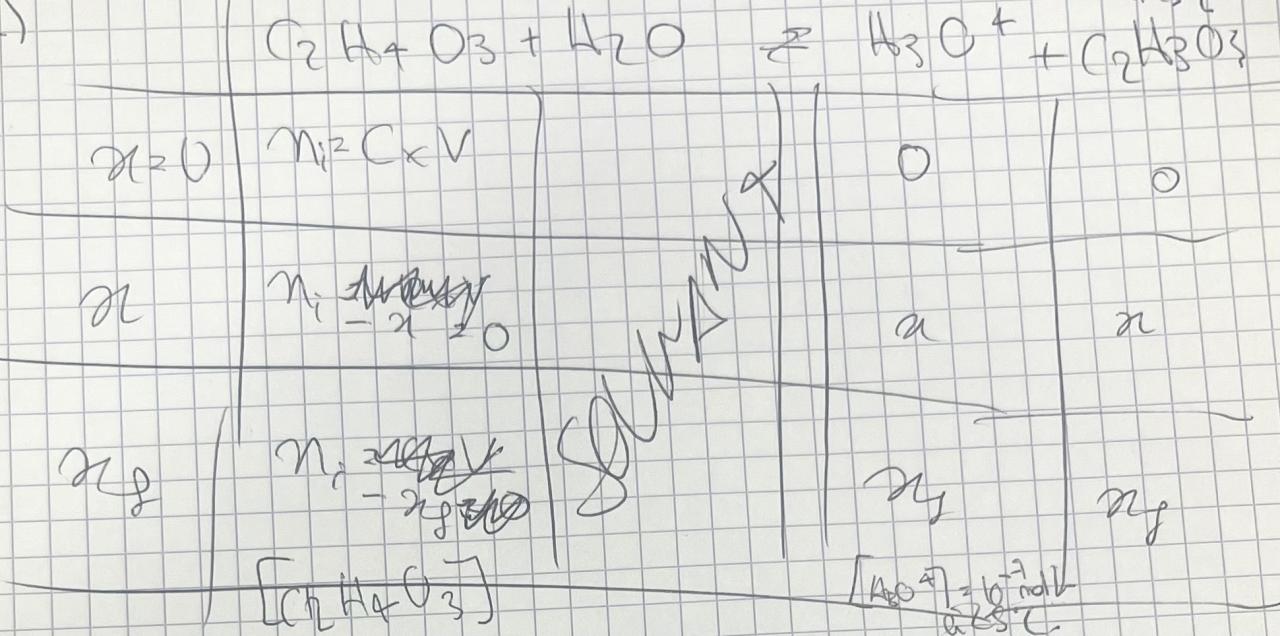 C2H4O3 + H2O ⇌ H3O+ + C2H3O3
x=0 ni = C×V 0 0
x ni - x = 0 x x
SOLVANT
xf ni - xf xf xf
[C2H4O3] [H3O+] = 10^-7 mol/L
à 25°C